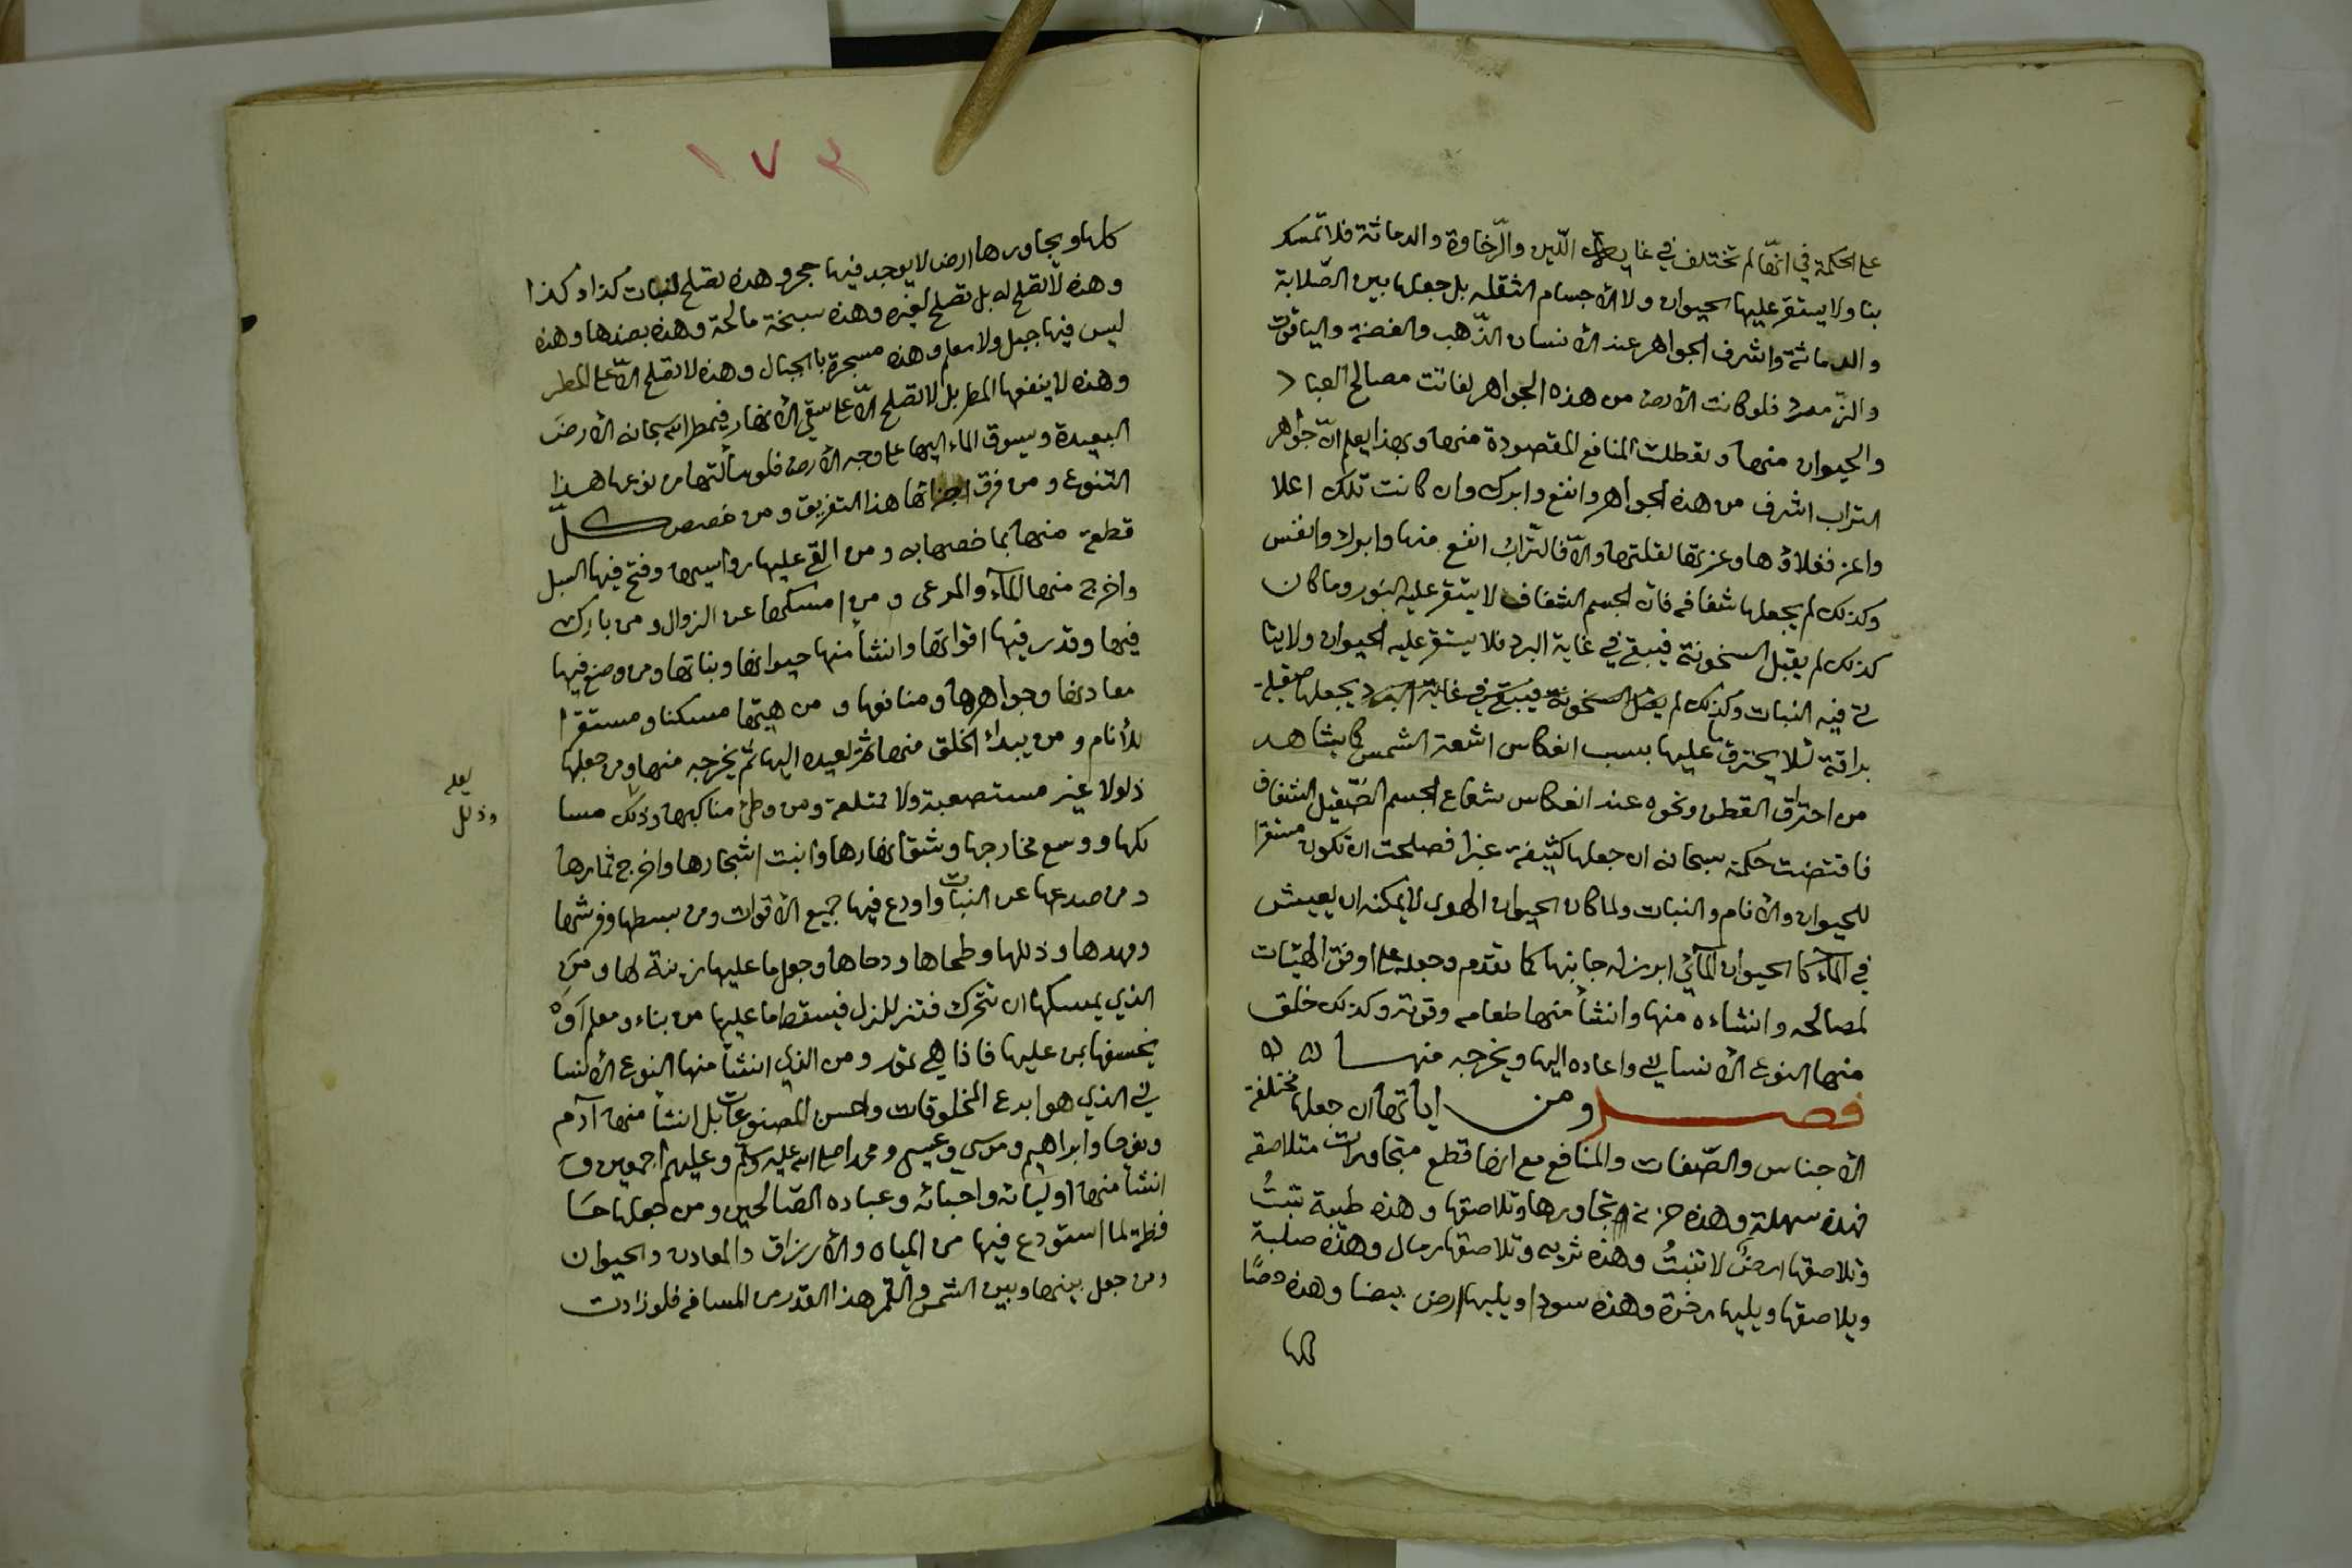 على الحكمة في انّها لم تختلف في غاية اللّين والرّخاوة والدماثة فلا تمسكـ
بنا ولا يستقر عليها الحيوان ولا الأجسام الثقله بل جعلها بين الصّلابة
والدماثة واشرف الجواهر عند الأنسان الذّهب والفضة والياقوت
والزّمرد فلو كانت الأرض من هذه الجواهر لفاتت مصالح العباد
والحيوان منها وتعطلت المنافع المقصودة منها وبهذا يعلم انّ جواهر
التراب اشرف من هذه الجواهر وانفع وابرك وان كانت تلك اعلا
واعز فغلاؤها وعزتها لقلتها والّا فالتّرابُ انفع منها وابرك وانفس
وكذلك لم يجعلها شفافه فان الجسم الشفاف لا يستقر عليه النور وما كان
كذلك لم يقبل السخونة فيبقي في غاية البرد فلا يستقر عليه الحيوان ولا يتا
تى فيه النبات وكذلك لم يقبل السخونة فيبقي في غاية البرد يجعلها صقيلة
براقة لئلا يحترق ما عليها بسبب انعكاس اشعة الشمس كما يشاهد
من احتراق القطن ونحوه عند انعكاس شعاع الجسم الصّقيل الشفاف
فاقتضت حكمة سبحانه ان جعلها كثيفة غبرا فصلحت ان تكون مستقرا
للحيوان والأنام والنبات ولما كان الحيوان الهوى لا يمكنه ان يعيش
في المآء كالحيوان المآئي ابرز له جانبها كما تقدم وجعله على اوفق الهيئات
لمصالحه وانشاءه منها وانشأ منها طعامه وقوته وكذلك خلق
منها النوع الأنساني واعاده اليها ويخرجه منها
فصل ومن اياتها ان جعلها مختلفة
الأجناس والصّفات والمنافع مع انها قطع متجاورات متلاصقه
فهذه سهلة وهذه حزنة تجاورها وتلاصقها وهذه طيبة تنبتُ
وتلاصقها ارضٌ لا تنبتُ وهذه تربه وتلاصقها رمال وهذه صلبة
ويلاصقها ويليها رخوة وهذه سودا ويليها ارض بيضا وهذه حصًا
كلها
١٧٣
كلها ويجاورها ارض لا يوجد فيها حجر وهذه تصلح لنبات كذا وكذا
وهذه لا تصلح له بل تصلح لغيره وهذه سبخة مالحة وهذه بضدها وهذه
ليس فيها جبل ولا معلم وهذه مسجرة بالجبال وهذه لا تصلح الّا على المطر
وهذه لا ينفعها المطر بل لا تصلح الّا على سقي الأنهار فيمطر الله سبحانه الأرض
البعيدة ويسوق الماء اليها على وجه الأرض فلو سألتها من نوعها هذا
التنوع ومن فرق اجزائها هذا التفريق ومن خصص كلّ
قطعة منها بما خصها به ومن القي عليها رواسيها وفتح فيها السبل
واخرج منها المآء والمرعى ومن امسكها عن الزوال ومن بارك
فيها وقدر فيها اقواتها وانشأ منها حيوانها ونباتها ومن وضع فيها
معادنها وجواهرها ومنافعها ومن هيئها مسكنا ومستقرا
للأنام ومن يبدأ الخلق منها ثم يعيده اليها ثم يخرجه منها ومن جعلها
ذلولا غير مستصعبة ولا ممتنعة ومن وطئ مناكبها وذلك مسا
لعله
وذلل
لكها ووسع مخارجها وشق انهارها وانبت اشجارها واخرج ثمارها
ومن صدعها عن النبات واودع فيها جميع الأقوات ومن بسطها وفرشها
ومهدها وذللها وطحاها ودحاها وجعل ما عليها زينة لها ومن
الذي يمسكها ان تتحرك فتتزلزل فيسقط ما عليها من بناء ومعلم اَوْ
يخسفها بمن عليها فاذا هي تمور ومن الذي انشأ منها النوع الأنسا
ني الذي هو ابدع المخلوقات واحسن المصنوعات بل انشأ منها آدم
ونوحا وابراهيم وموسى وعيسى ومحمدا صلى الله عليه وسلم وعليهم اجمعين و
انشأ منها اوليائه واحبائه وعباده الصّالحين ومن جعلها حا
فظة لما استودع فيها من المياه والأرزاق والمعادن والحيوان
ومن جعل بينها وبين الشمس والقمر هذا القدر من المسافه فلو زادت